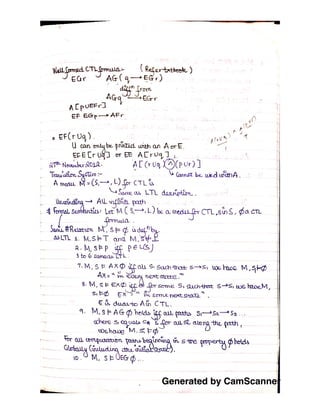 Well formed CTL formula:- (Refer textbook)
EGr AG(q → EGr)
diffn from
AGq → EGr
A[pUEFr]
EF EGp → AFr
EF(r U q)
U can only be prefixed with an A or E.
EF E[r U q] or EF A[r U q]
27th November 2012. A[(r U q) ∧ (p U r)]
Transition System:- Cannot be used with A.
A model M = (S, →, L) for CTL is
same as LTL definition.
Unwinding → All infinite path
Formal Semantics: Let M (S, →, L) be a model for CTL, s in S, φ a CTL
formula.
Relation M, s ⊨ φ is defn by
1. M, s ⊨ T and M, s ⊭ ⊥
2. M, s ⊨ p iff p ∈ L(s)
3 to 6 same as LTL
7. M, s ⊨ AXφ iff all s₁ such that s → s₁ we have M, s₁ ⊨ φ
AX: "in every next state"
8. M, s ⊨ EXφ iff for some s₁ such that s → s₁ we have M,
s₁ ⊨ φ EX "in some next state".
E is dual to A in CTL.
9. M, s ⊨ AGφ holds iff all paths s₁ → s₂ → s₃...
where s₁ equals s for all si along the path,
we have M, si ⊨ φ
For all computation paths beginning in s the property φ holds
Globally (including the initial state).
10. M, s ⊨ EGφ ...
Generated by CamScanner